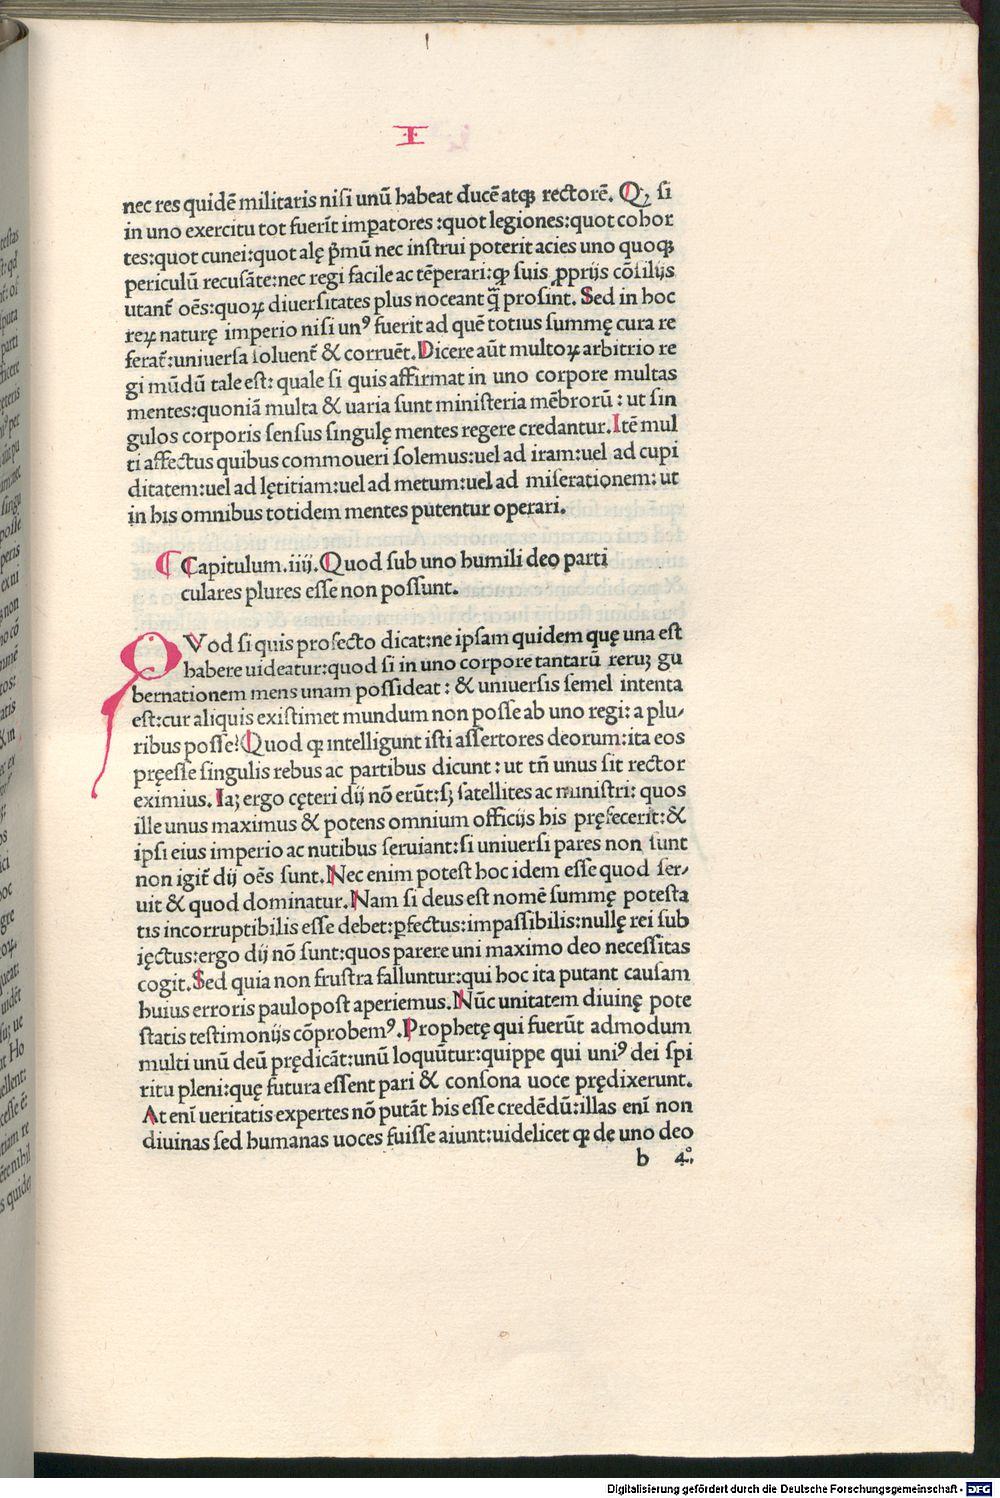 I
nec res quidē militaris nisi unū habeat ducē atqꝫ rectorē. Qꝫ si
in uno exercitu tot fuerīt impatores :quot legiones:quot cohor
tes:quot cunei:quot alę p̄mū nec instrui poterit acies uno quoqꝫ
periculū recusāte:nec regi facile ac tēperari:ꝙ suis ꝓprijs cōsilijs
utant̄ oēs:quoꝝ diuersitates plus noceant q̄ prosint. Sed in hoc
reꝝ naturę imperio nisi unꝰ fuerit ad quē totius summę cura re
ferat̄:uniuersa soluent̄ & corruēt. Dicere aūt multoꝝ arbitrio re
gi mūdū tale est: quale si quis affirmat in uno corpore multas
mentes:quoniā multa & uaria sunt ministeria mēbrorū : ut sin
gulos corporis sensus singulę mentes regere credantur. Itē mul
ti affectus quibus commoueri solemus:uel ad iram:uel ad cupi
ditatem:uel ad lętitiam:uel ad metum:uel ad miserationem: ut
in his omnibus totidem mentes putentur operari.
¶ Capitulum.iiij. Quod sub uno humili deo parti
culares plures esse non possunt.
QVod si quis profecto dicat:ne ipsam quidem quę una est
habere uideatur:quod si in uno corpore tantarū reruꝫ gu
bernationem mens unam possideat : & uniuersis semel intenta
est:cur aliquis existimet mundum non posse ab uno regi: a plu/
ribus posse? Quod ꝙ intelligunt isti assertores deorum:ita eos
pręesse singulis rebus ac partibus dicunt : ut tn̄ unus sit rector
eximius. Iaꝫ ergo cęteri dij nō erūt:sꝫ satellites ac ministri: quos
ille unus maximus & potens omnium officijs his pręfecerit:&
ipsi eius imperio ac nutibus seruiant:si uniuersi pares non sunt
non igit̄ dij oēs sunt. Nec enim potest hoc idem esse quod ser/
uit & quod dominatur. Nam si deus est nomē summę potesta
tis incorruptibilis esse debet:ꝑfectus:impassibilis:nullę rei sub
ięctus:ergo dij nō sunt:quos parere uni maximo deo necessitas
cogit. Sed quia non frustra falluntur:qui hoc ita putant causam
huius erroris paulopost aperiemus. Nūc unitatem diuinę pote
statis testimonijs cōprobemꝰ. Prophetę qui fuerūt admodum
multi unū deū prędicāt:unū loquūtur:quippe qui uniꝰ dei spi
ritu pleni:quę futura essent pari & consona uoce prędixerunt.
At enī ueritatis expertes nō putāt his esse credēdū:illas enī non
diuinas sed humanas uoces fuisse aiunt:uidelicet ꝙ de uno deo
b 4.
Digitalisierung gefördert durch die Deutsche Forschungsgemeinschaft - DFG